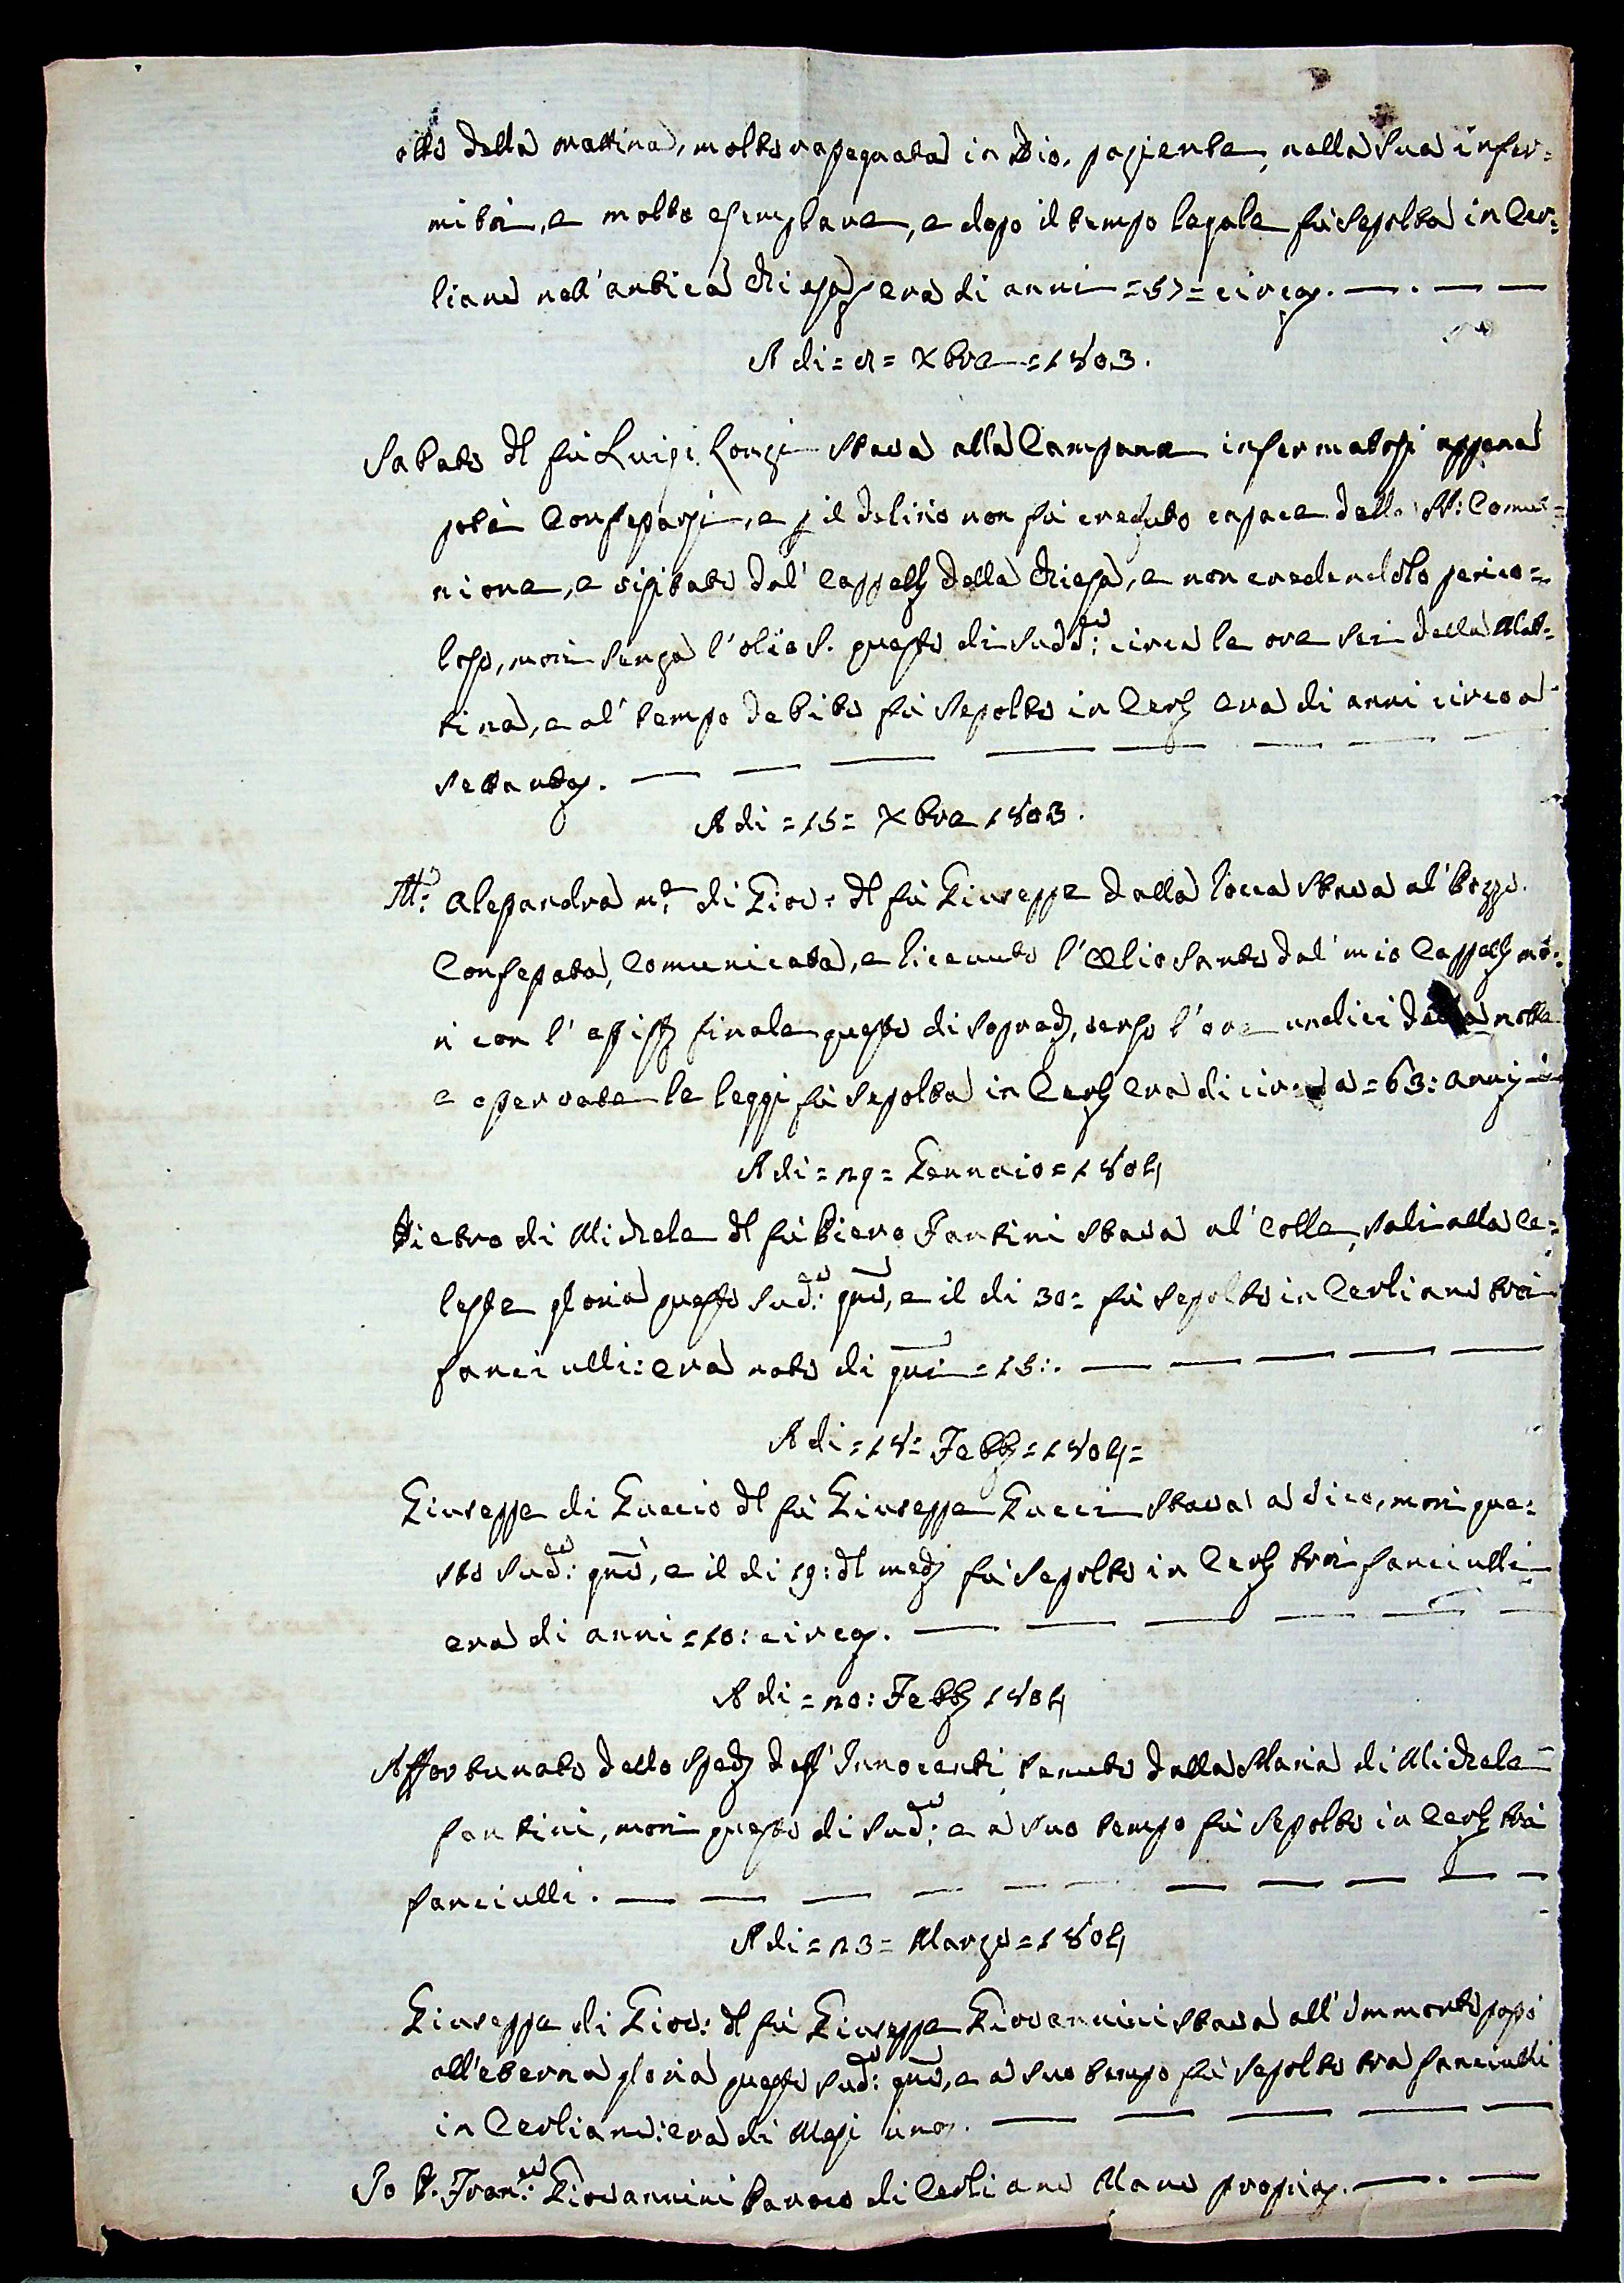 otto della mattina, molto rassegnata in Dio, paziente, nella sua infer=
mità, e molto esemplare, e dopo il tempo legale fù sepolta in Cer=
liano nell'antica Chiesa, era di anni =57= circa.
A di = 2 = Xbre = 1803.
Sabato del fù Luigi Longi stava alla Campana infermatosi appena
potè Confessarsi, e p il delirio non fù creduto capace della SS: Comu=
nione, e visitato dal' Capp della Chiesa, e non credendolo perico=
loso, morì senza l'olio S. questo di sudd:to circa le ore sei della Mat=
tina, e al' tempo debito fù sepolto in Cerl era di anni circa
settanta.
A di = 15 = Xbre 1803.
M:a Alessandra m:e di Giov: del fù Giuseppe della stava al' Pozzo.
Confessata, Comunicata, e ricevuto l'Olio Santo dal' mio Capp mo=
ri con l'assist finale questo di soprad, verso l'ore undici della notte
e osservate le leggi fù sepolta in Cerl era di circa = 63: anni
A di = 29 = Gennaio = 1804
Pietro di Michele del fù Piero Fantini stava al' Colle, salì alla Ce=
leste gloria questo sud:to gno, e il di 30= fù sepolto in Cerliano trai
fanciulli: era nato di gni = 15:.
A di = 18 = Febb = 1804=
Giuseppe di Guccio del fù Giuseppe Gucci stava a Vico, morì que=
sto sud:to gno, e il di 19: del med fù sepolto in Cerl trai fanciulli
era di anni = 10: circa.
A di = 20: Febb 1804
Affortunato dello Sped degl' Innocenti tenuto dalla Maria di Michele
fantini, morì questo di sud:to e a suo tempo fù sepolto in Cerl trai
fanciulli.
A di = 23 = Marzo = 1804
Giuseppe di Giov: del fù Giuseppe Giovannini stava all' Immorto passò
all'eterna gloria questo sud:to gno, e a suo tempo fù sepolto tra fanciulli
in Cerliano: era di Mesi uno.
Io P. Fran:co Giovannini Paroco di Cerliano Mano propria.